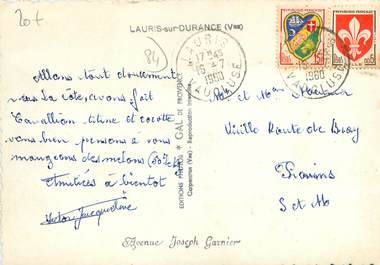 20f
LAURIS-sur-DURANCE (Vse)
84
LAURIS
17H45
16-7
1960
VAUCLUSE
Allons tout doucement
vers la côte, avons fait
Cavaillon
vous bien pensons à vous
mangeons des melons
Amitiés à bientôt
Jacqueline
EDITIONS PHOTOS * GAL DE PROVENCE
Carpentras (Vse) - Reproduction Interdite
et Mme
Vieille Route de Bray
Provins
S et M
Avenue Joseph Garnier